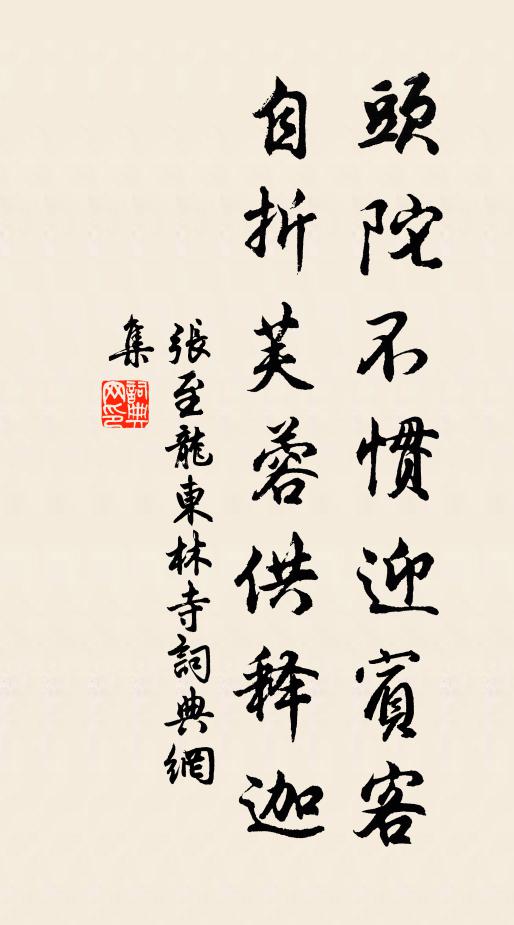 頭陀不慣迎賓客
自折芙蓉供释迦
張至龍東林寺詞典網
集
詞典
网印